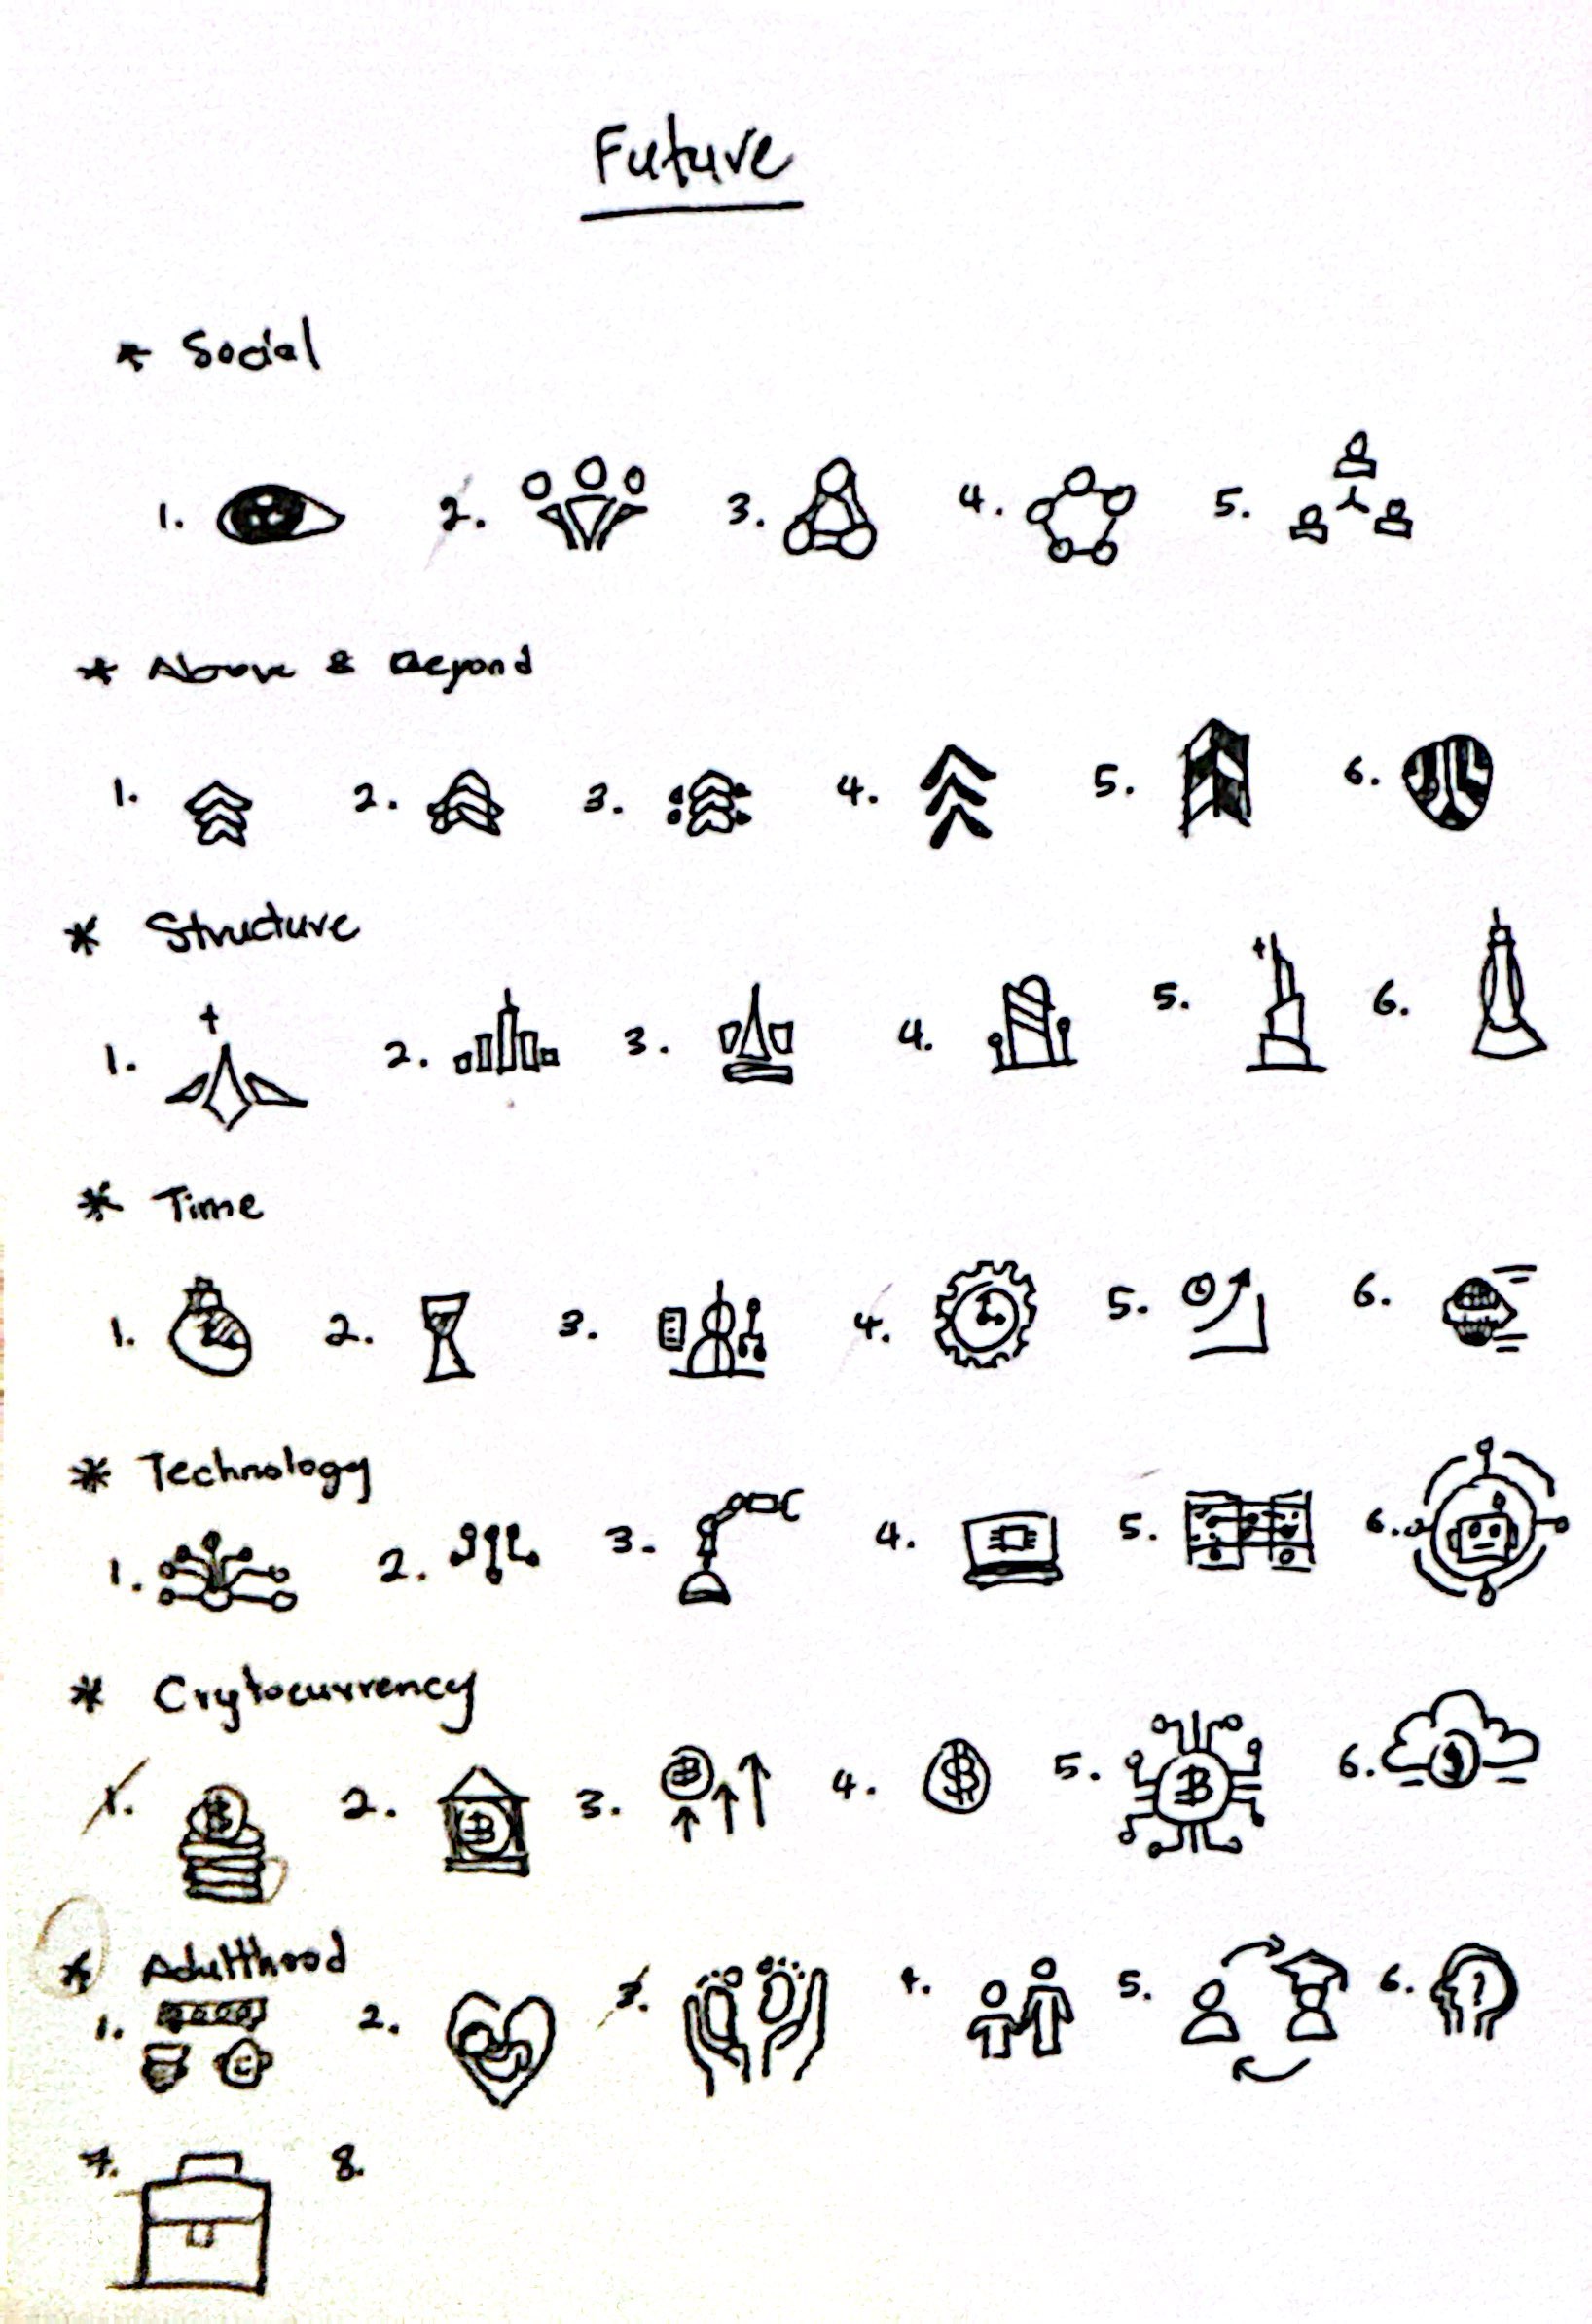 Future
* Social
1. 2. 3. 4. 5.
* Above & Beyond
1. 2. 3. 4. 5. 6.
* Structure
1. 2. 3. 4. 5. 6.
* Time
1. 2. 3. 4. 5. 6.
* Technology
1. 2. 3. 4. 5. 6.
* Crytocurrency
1. 2. 3. 4. 5. 6.
* Adulthood
1. 2. 3. 4. 5. 6.
7. 8.